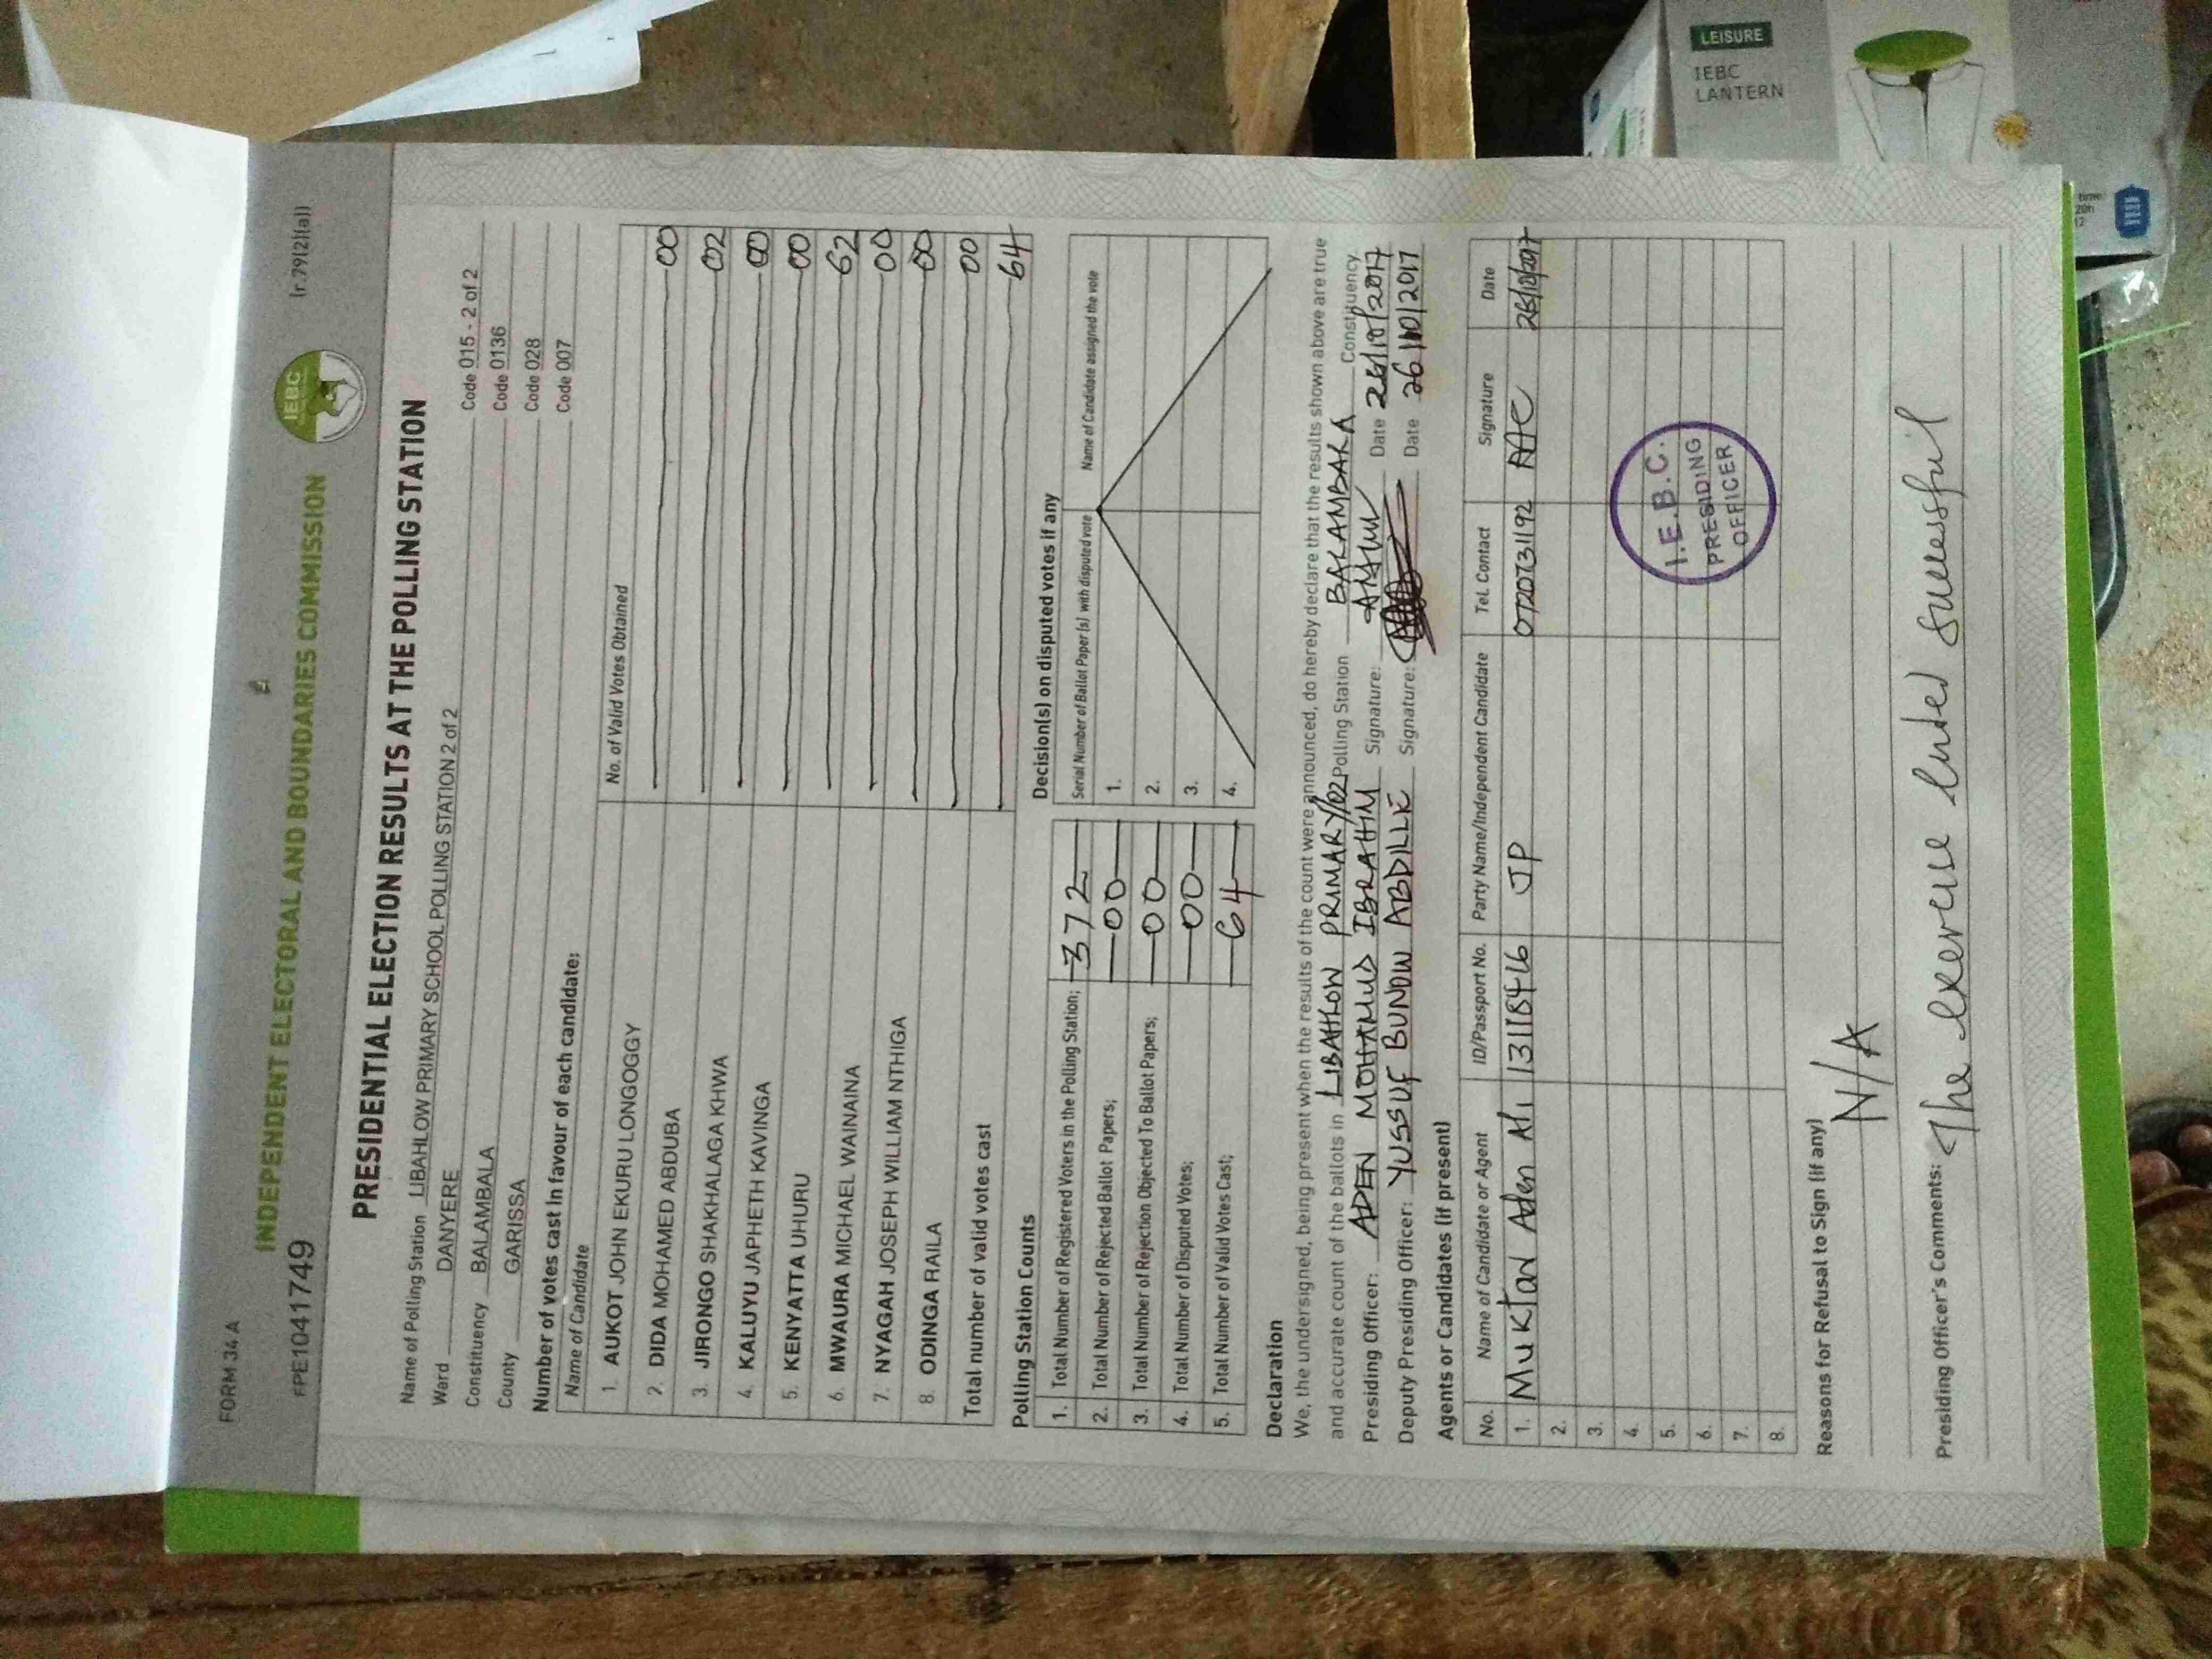 FORM 34 A
(r.79(2)(a))
INDEPENDENT ELECTORAL AND BOUNDARIES COMMISSION
IEBC
FPE1041749
PRESIDENTIAL ELECTION RESULTS AT THE POLLING STATION
Name of Polling Station LIBAHLOW PRIMARY SCHOOL POLLING STATION 2 of 2 Code 015 - 2 of 2
Ward DANYERE Code 0136
Constituency BALAMBALA Code 028
County GARISSA Code 007
Number of votes cast In favour of each candidate:
Name of Candidate No. of Valid Votes Obtained
1. AUKOT JOHN EKURU LONGOGGY 00
2. DIDA MOHAMED ABDUBA 02
3. JIRONGO SHAKHALAGA KHWA 00
4. KALUYU JAPHETH KAVINGA 00
5. KENYATTA UHURU 62
6. MWAURA MICHAEL WAINAINA 00
7. NYAGAH JOSEPH WILLIAM NTHIGA 00
8. ODINGA RAILA 00
Total number of valid votes cast 64
Polling Station Counts
1. Total Number of Registered Voters in the Polling Station; 372
2. Total Number of Rejected Ballot Papers; 00
3. Total Number of Rejection Objected To Ballot Papers; 00
4. Total Number of Disputed Votes; 00
5. Total Number of Valid Votes Cast; 64
Decision(s) on disputed votes if any
Serial Number of Ballot Paper (s) with disputed vote Name of Candidate assigned the vote
1.
2.
3.
4.
Declaration
We, the undersigned, being present when the results of the count were announced, do hereby declare that the results shown above are true
and accurate count of the ballots in LIBAHLOW PRIMARY/02 Polling Station BALAMBALA Constituency.
Presiding Officer: ADEN MOHAMUD IBRAHIM Signature: Date 26/10/2017
Deputy Presiding Officer: YUSSUF BUNOW ABDILLE Signature: Date 26/10/2017
Agents or Candidates (if present)
No. Name of Candidate or Agent ID/Passport No. Party Name/Independent Candidate Tel. Contact Signature Date
1. Muktar Aden Ali 13118416 JP 0720731192 AAC 26/10/2017
2.
3.
4.
5.
6.
7.
8.
I.E.B.C.
PRESIDING
OFFICER
Reasons for Refusal to Sign (if any)
N/A
Presiding Officer's Comments: The exercise ended successful
LEISURE
IEBC
LANTERN